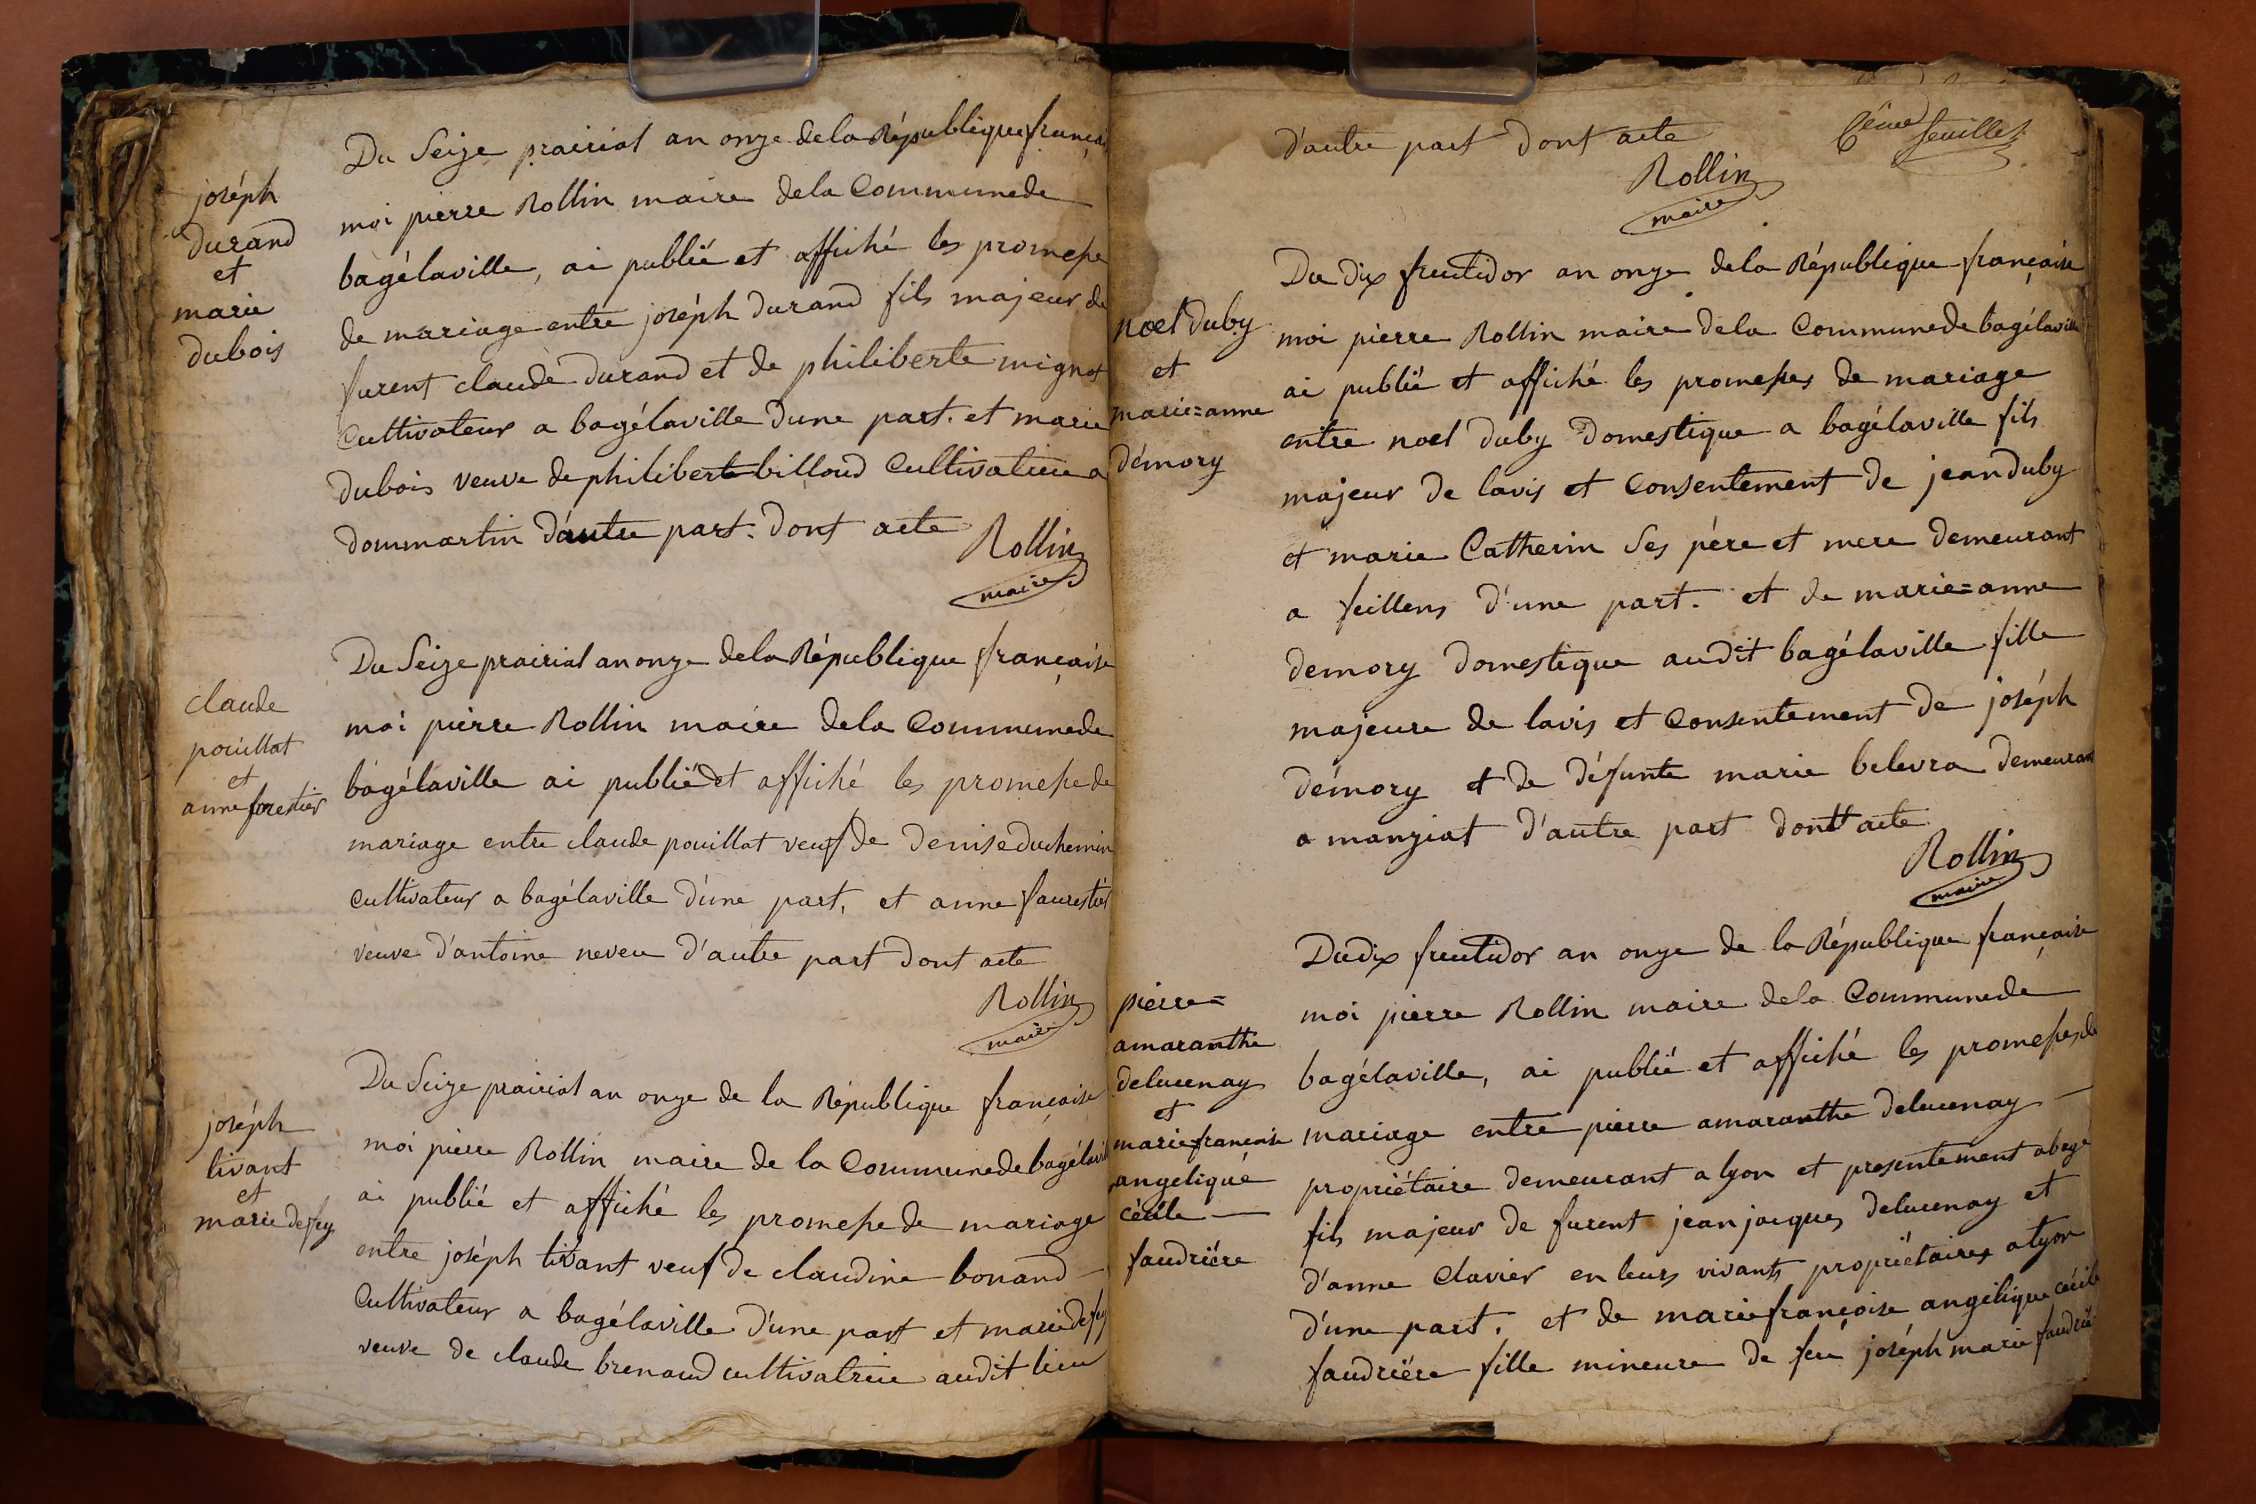 joséph
durand
et
marie
dubois
Du Seize prairial an onze de la République françai
moi pierre Rollin maire de la Commune de
bagélaville, ai publié et affiché les promesse
de mariage entre joséph durand fils majeur de
furent claude durand et de philiberte mignot
Cultivateur a bagélaville dune part. et marie
dubois veuve de philibert billoud Cultivatrice a
dommartin dautre part. dont acte
Rollin
maire
claude
pouillat
et
anne forestier
Du Seize prairial an onze de la République française
moi pierre Rollin maire de la Commune de
bagélaville ai publié et affiché les promesse de
mariage entre claude pouillat veuf de denise duchemin
Cultivateur a bagélaville d'une part, et anne faurestier
veuve d'antoine neveu d'autre part dont acte
Rollin
maire
joséph
tivant
et
marie defey
Du Seize prairial an onze de la République française
moi pierre Rollin maire de la Commune de bagélavill
ai publié et affiché les promesse de mariage
entre joséph tivant veuf de claudine bonand
Cultivateur a bagélaville d'une part et marie defey
veuve de claude brenaud cultivatrice audit lieu
6eme feuillet
d'autre part dont acte
Rollin
maire
noel duby
et
marie=anne
démory
Du dix fructidor an onze de la République française
moi pierre Rollin maire de la Commune de bagélaville
ai publié et affiché les promesses de mariage
entre noel duby domestique a bagélaville fils
majeur de lavis et Consentement de jean duby
et marie Catherin Ses père et mere demeurant
a feillens d'une part. et de marie=anne
demory domestique audit bagélaville fille
majeure de lavis et Consentement de joséph
démory et de défunte marie belevra demeurant
a manziat d'autre part dont acte
Rollin
maire
pierre=
amaranthe
delucenay
et
marie françoise
angelique
cécile
faudriére
Du dix fructidor an onze de la République française
moi pierre Rollin maire de la Commune de
bagélaville, ai publié et affiché les promesses de
mariage entre pierre amaranthe delucenay
propriétaire demeurant a lyon et presentement a bage
fils majeur de furent jean jacques delucenay et
d'anne Clavier en leurs vivants propriétaires a lyon
d'une part. et de marie françoise angélique cécile
faudriére fille mineure de feu joséph marie faudrié